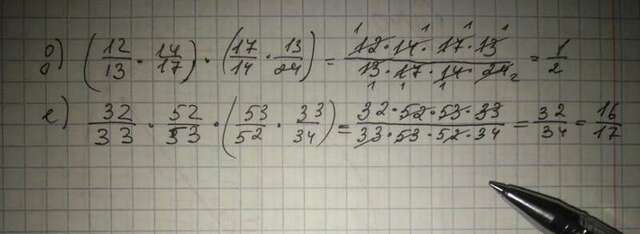 д) (12/13 · 14/17) · (17/14 · 13/24) = 12·14·17·13/13·17·14·24 = 1/2
е) 32/33 · 52/53 · (53/52 · 33/34) = 32·52·53·33/33·53·52·34 = 32/34 = 16/17